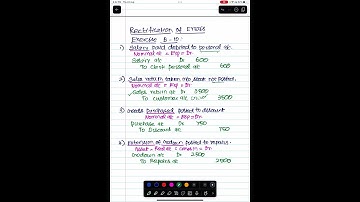 Rectification of Errors
Exercise B - 10
1) Salary paid debited to personal a/c.
Nominal a/c = Exp = Dr.
Salary a/c Dr 600
To Clerk personal a/c 600
2) Sales return taken into stock not posted.
Nominal a/c = Exp = Dr.
Sales return a/c Dr 3500
To customer a/c 3500
3) Goods purchased posted to discount
Nominal a/c = Exp = Dr
Purchase a/c Dr 750
To Discount a/c 750
4) Extension of Godown posted to repairs.
Asset = Real a/c = comes in = Dr.
Godown a/c Dr 2500
To Repairs a/c 2500